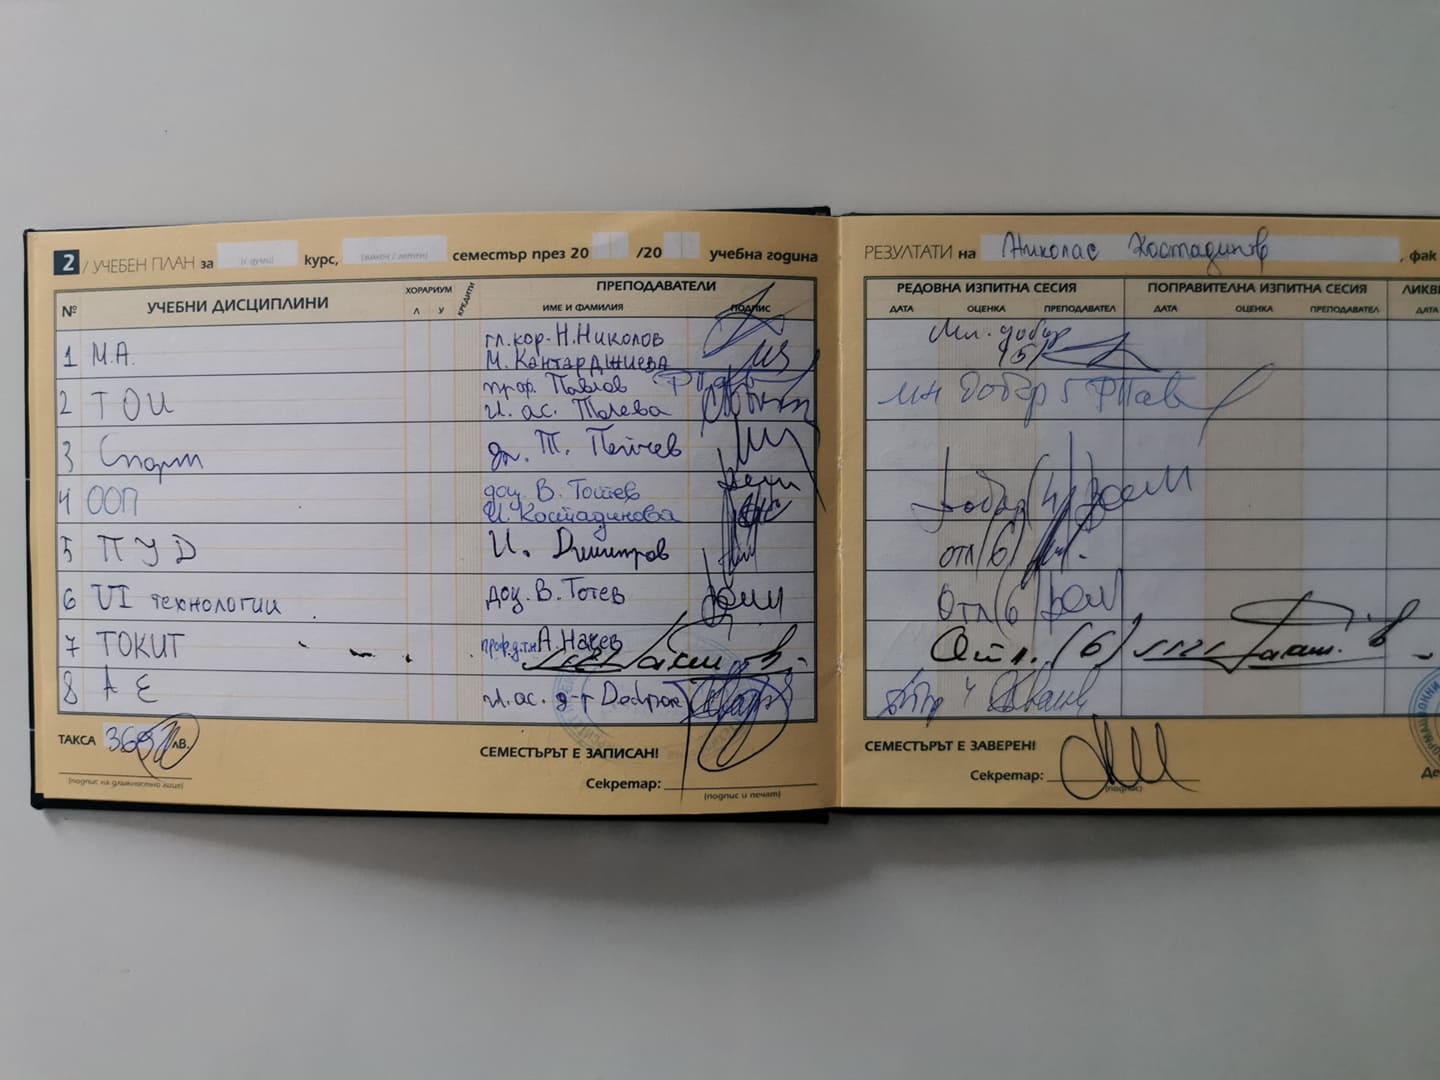 2 / УЧЕБЕН ПЛАН за (с думи) курс, (зимен / летен) семестър през 20 /20 учебна година
№ УЧЕБНИ ДИСЦИПЛИНИ ХОРАРИУМ Л У КРЕДИТИ ПРЕПОДАВАТЕЛИ ИМЕ И ФАМИЛИЯ ПОДПИС
1 М.А. гл.кор. Н.Николов
М. Кантарджиева
2 ТОИ проф. Павлов
и. ас. Толева
3 Спорт Т. Пейчев
4 ООП доц. В. Тотев
И. Костадинова
5 ПУД И. Димитров
6 VI технологии доц. В. Тотев
7 ТОКИТ проф.д.т.н А. Наков
8 АЕ гл. ас. д-р
ТАКСА лв.
(подпис на длъжностно лице)
СЕМЕСТЪРЪТ Е ЗАПИСАН!
Секретар:
(подпис и печат)
РЕЗУЛТАТИ на Николас Костадинов, фак
РЕДОВНА ИЗПИТНА СЕСИЯ ПОПРАВИТЕЛНА ИЗПИТНА СЕСИЯ ЛИКВИ
ДАТА ОЦЕНКА ПРЕПОДАВАТЕЛ ДАТА ОЦЕНКА ПРЕПОДАВАТЕЛ ДАТА
Мн. добър
(5)
мн добър 5
добър (4)
отл (6)
Отл (6)
Отл. (6)
4
СЕМЕСТЪРЪТ Е ЗАВЕРЕН!
Секретар:
(подпис)
Де